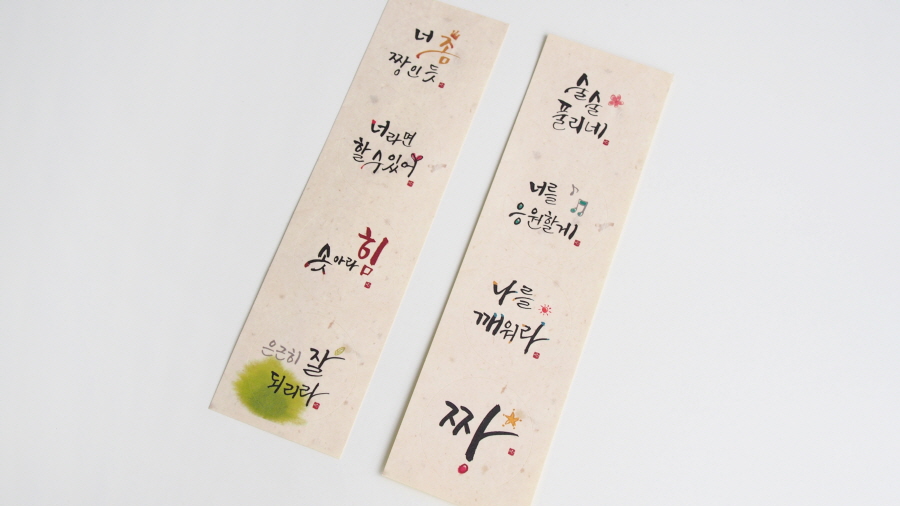 너 좀
짱인 듯
너라면
할 수 있어
솟아라 힘
은근히 잘
되리라
술술
풀리네
너를
응원할게
나를
깨워라
짱